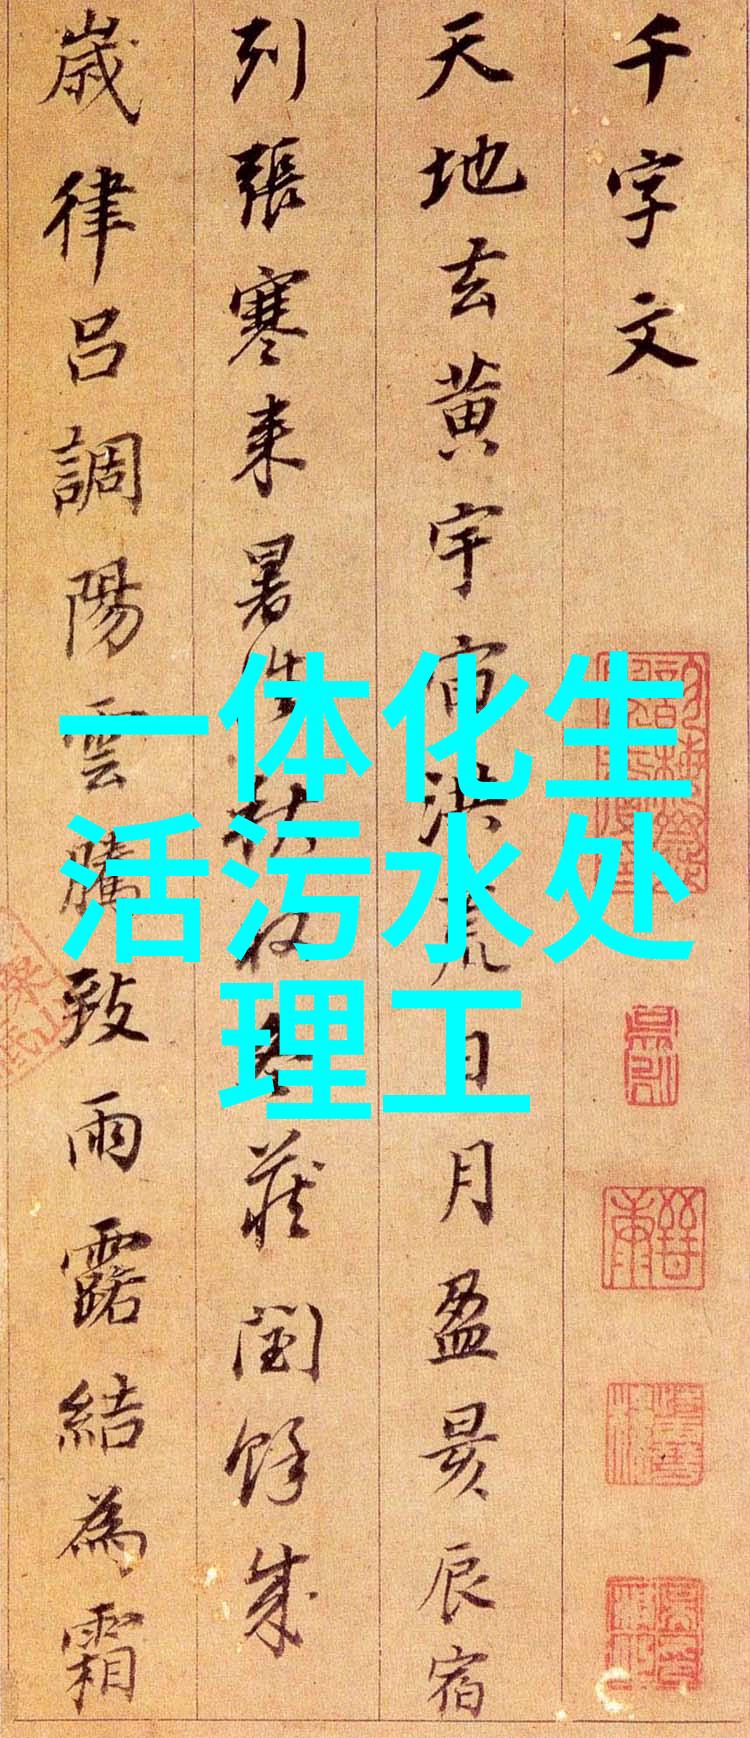 千字文
天地玄黄宇宙洪荒日月盈昃辰宿
列張寒来暑往秋收冬藏閏餘成
歲律呂調陽雲騰致雨露結為霜
一体化生
活污水处
理工